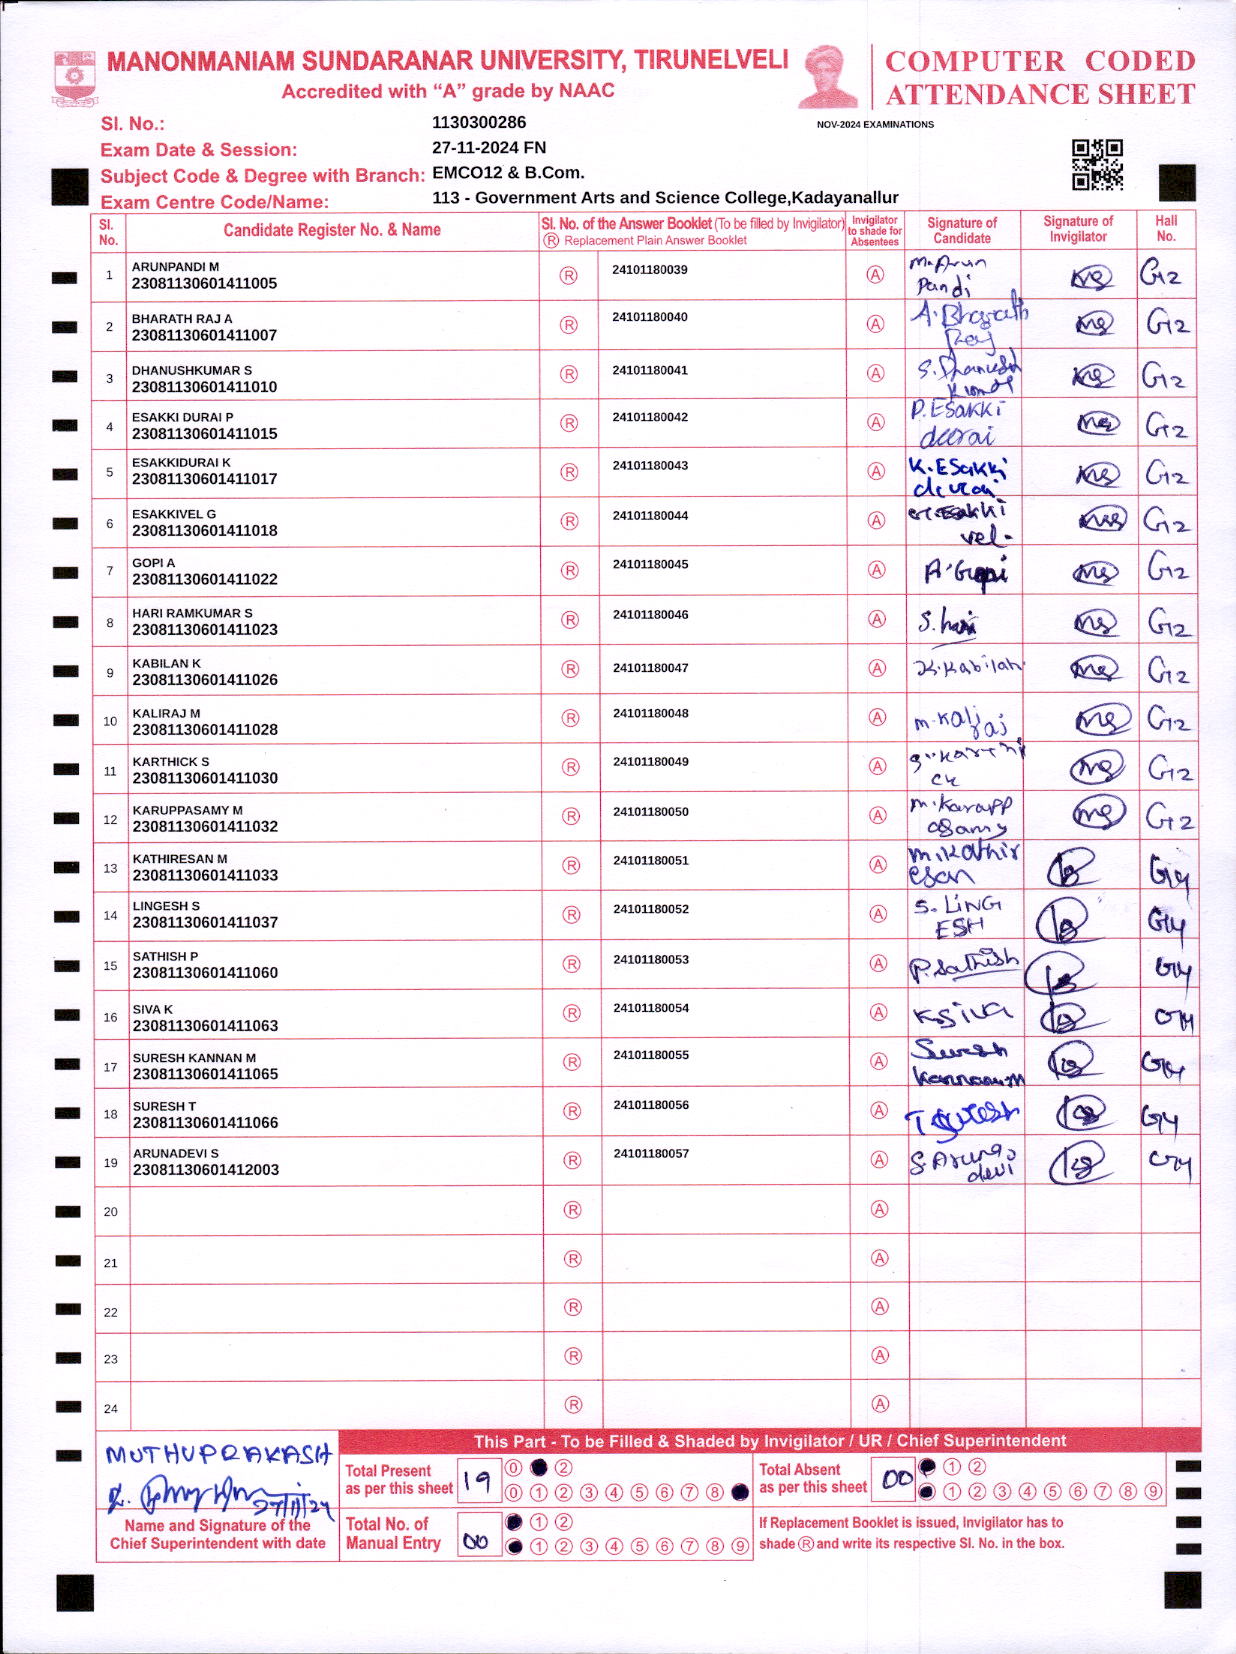 MANONMANIAM SUNDARANAR UNIVERSITY, TIRUNELVELI
Accredited with “A” grade by NAAC
COMPUTER CODED
ATTENDANCE SHEET
NOV-2024 EXAMINATIONS
Sl. No.: 1130300286
Exam Date & Session: 27-11-2024 FN
Subject Code & Degree with Branch: EMCO12 & B.Com.
Exam Centre Code/Name: 113 - Government Arts and Science College,Kadayanallur
Sl. No. Candidate Register No. & Name Sl. No. of the Answer Booklet (To be filled by Invigilator) Ⓡ Replacement Plain Answer Booklet Invigilator to shade for Absentees Signature of Candidate Signature of Invigilator Hall No.
1 ARUNPANDI M 23081130601411005 Ⓡ 24101180039 Ⓐ M.Arun Pandi G12
2 BHARATH RAJ A 23081130601411007 Ⓡ 24101180040 Ⓐ A.Bharath Raj G12
3 DHANUSHKUMAR S 23081130601411010 Ⓡ 24101180041 Ⓐ G12
4 ESAKKI DURAI P 23081130601411015 Ⓡ 24101180042 Ⓐ P.Esakki durai G12
5 ESAKKIDURAI K 23081130601411017 Ⓡ 24101180043 Ⓐ K.Esakki durai G12
6 ESAKKIVEL G 23081130601411018 Ⓡ 24101180044 Ⓐ G.Esakki vel G12
7 GOPI A 23081130601411022 Ⓡ 24101180045 Ⓐ A.Gopi G12
8 HARI RAMKUMAR S 23081130601411023 Ⓡ 24101180046 Ⓐ S.hari G12
9 KABILAN K 23081130601411026 Ⓡ 24101180047 Ⓐ K.Kabilan G12
10 KALIRAJ M 23081130601411028 Ⓡ 24101180048 Ⓐ m.kali raj G12
11 KARTHICK S 23081130601411030 Ⓡ 24101180049 Ⓐ S.karthi ck G12
12 KARUPPASAMY M 23081130601411032 Ⓡ 24101180050 Ⓐ m.karupp asamy G12
13 KATHIRESAN M 23081130601411033 Ⓡ 24101180051 Ⓐ M.Kathir esan G14
14 LINGESH S 23081130601411037 Ⓡ 24101180052 Ⓐ S. LiNG ESH G14
15 SATHISH P 23081130601411060 Ⓡ 24101180053 Ⓐ P.Sathish G14
16 SIVA K 23081130601411063 Ⓡ 24101180054 Ⓐ K siva G14
17 SURESH KANNAN M 23081130601411065 Ⓡ 24101180055 Ⓐ Suresh kannan.M G14
18 SURESH T 23081130601411066 Ⓡ 24101180056 Ⓐ T Suresh G14
19 ARUNADEVI S 23081130601412003 Ⓡ 24101180057 Ⓐ S.Aruna devi G14
20 Ⓡ Ⓐ
21 Ⓡ Ⓐ
22 Ⓡ Ⓐ
23 Ⓡ Ⓐ
24 Ⓡ Ⓐ
This Part - To be Filled & Shaded by Invigilator / UR / Chief Superintendent
MUTHUPRAKASH
27/11/24
Name and Signature of the
Chief Superintendent with date
Total Present
as per this sheet
19
0 2
0 1 2 3 4 5 6 7 8
Total Absent
as per this sheet
00
1 2
1 2 3 4 5 6 7 8 9
Total No. of
Manual Entry
00
1 2
1 2 3 4 5 6 7 8 9
If Replacement Booklet is issued, Invigilator has to
shade Ⓡ and write its respective Sl. No. in the box.